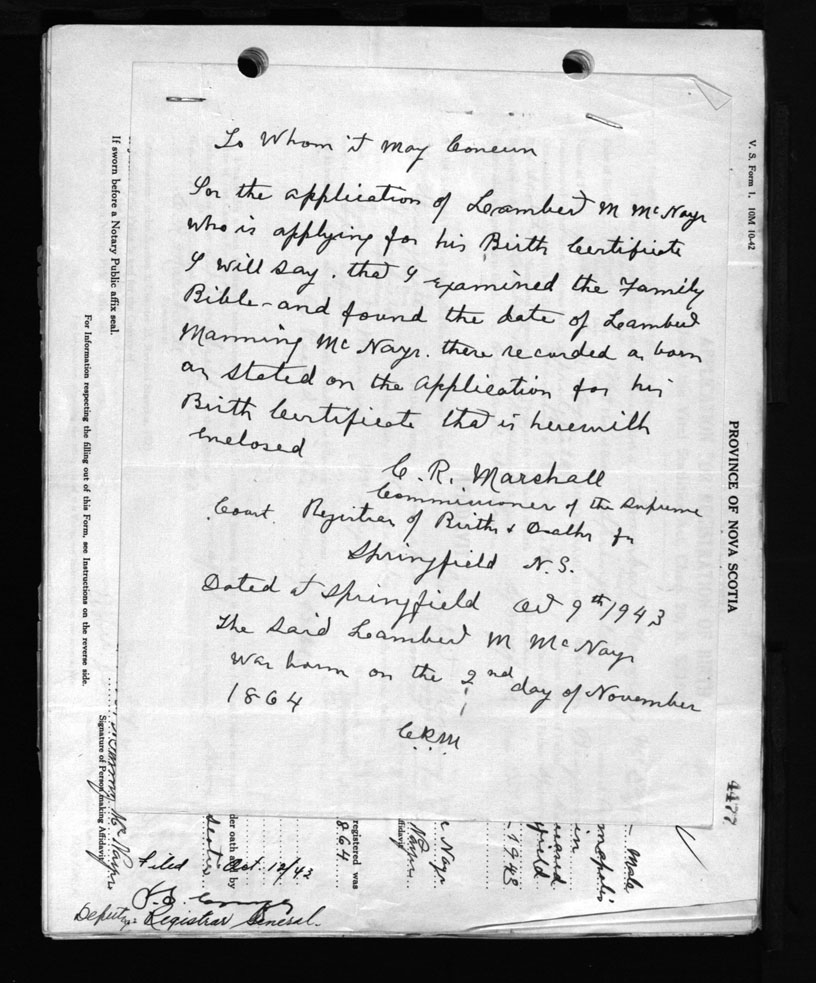 To Whom it May Concern
For the application of Lambert M McNayr
who is applying for his Birth Certificate
I will say. that I examined the Family
Bible - and found the date of Lambert
Manning McNayr. there recorded as born
as stated on the application for his
Birth Certificate that is herewith
enclosed
C. R. Marshall
Commissioner of the Supreme
Court. Registrar of Births & Deaths for
Springfield N.S.
Dated at Springfield Oct 9th 1943
The said Lambert M McNayr
was born on the 2nd day of November
1864
C.R.M
Filed Oct 12/43
Deputy Registrar General.
If sworn before a Notary Public affix seal.
For Information respecting the filling out of this Form, see Instructions on the reverse side.
Signature of Person making Affidavit
Manning McNayr
der oath by
registered was
864
Affidavit
Nayr
c Nayr
1943
Male
V. S. Form 1. 10M 10-42
PROVINCE OF NOVA SCOTIA
4477